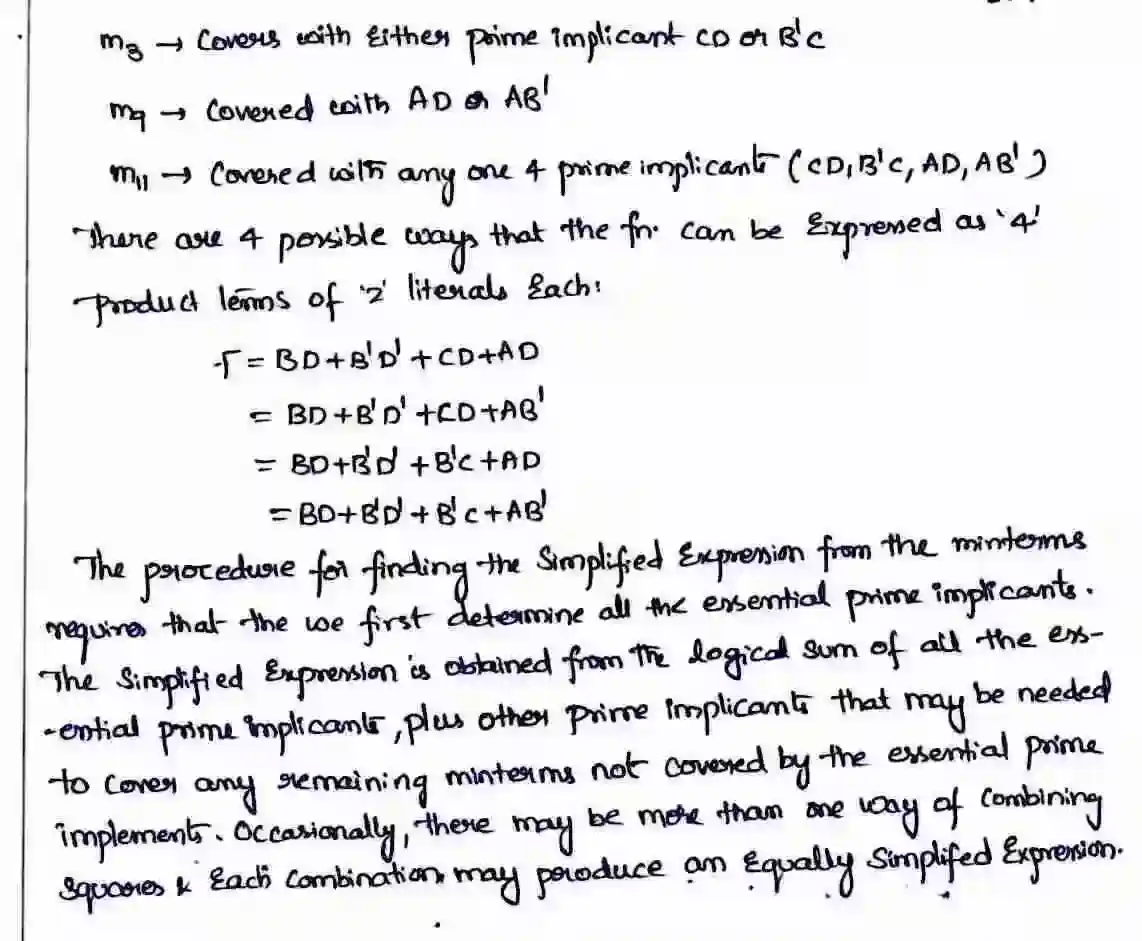 m₃ → Covers with Either prime implicant CD or B'C
m₉ → Covered with AD or AB'
m₁₁ → Covered with any one 4 prime implicants (CD, B'C, AD, AB')
There are 4 possible ways that the fn. can be Expressed as '4'
product terms of '2' literals Each:
F = BD+B'D'+CD+AD
= BD+B'D'+CD+AB'
= BD+B'D'+B'C+AD
= BD+B'D'+B'C+AB'
The procedure for finding the Simplified Expression from the minterms
requires that the we first determine all the essential prime implicants.
The Simplified Expression is obtained from the logical sum of all the ess-
-ential prime implicants, plus other prime implicants that may be needed
to cover any remaining minterms not covered by the essential prime
implements. Occasionally, there may be more than one way of Combining
squares & Each Combination may produce an Equally Simplifed Expression.